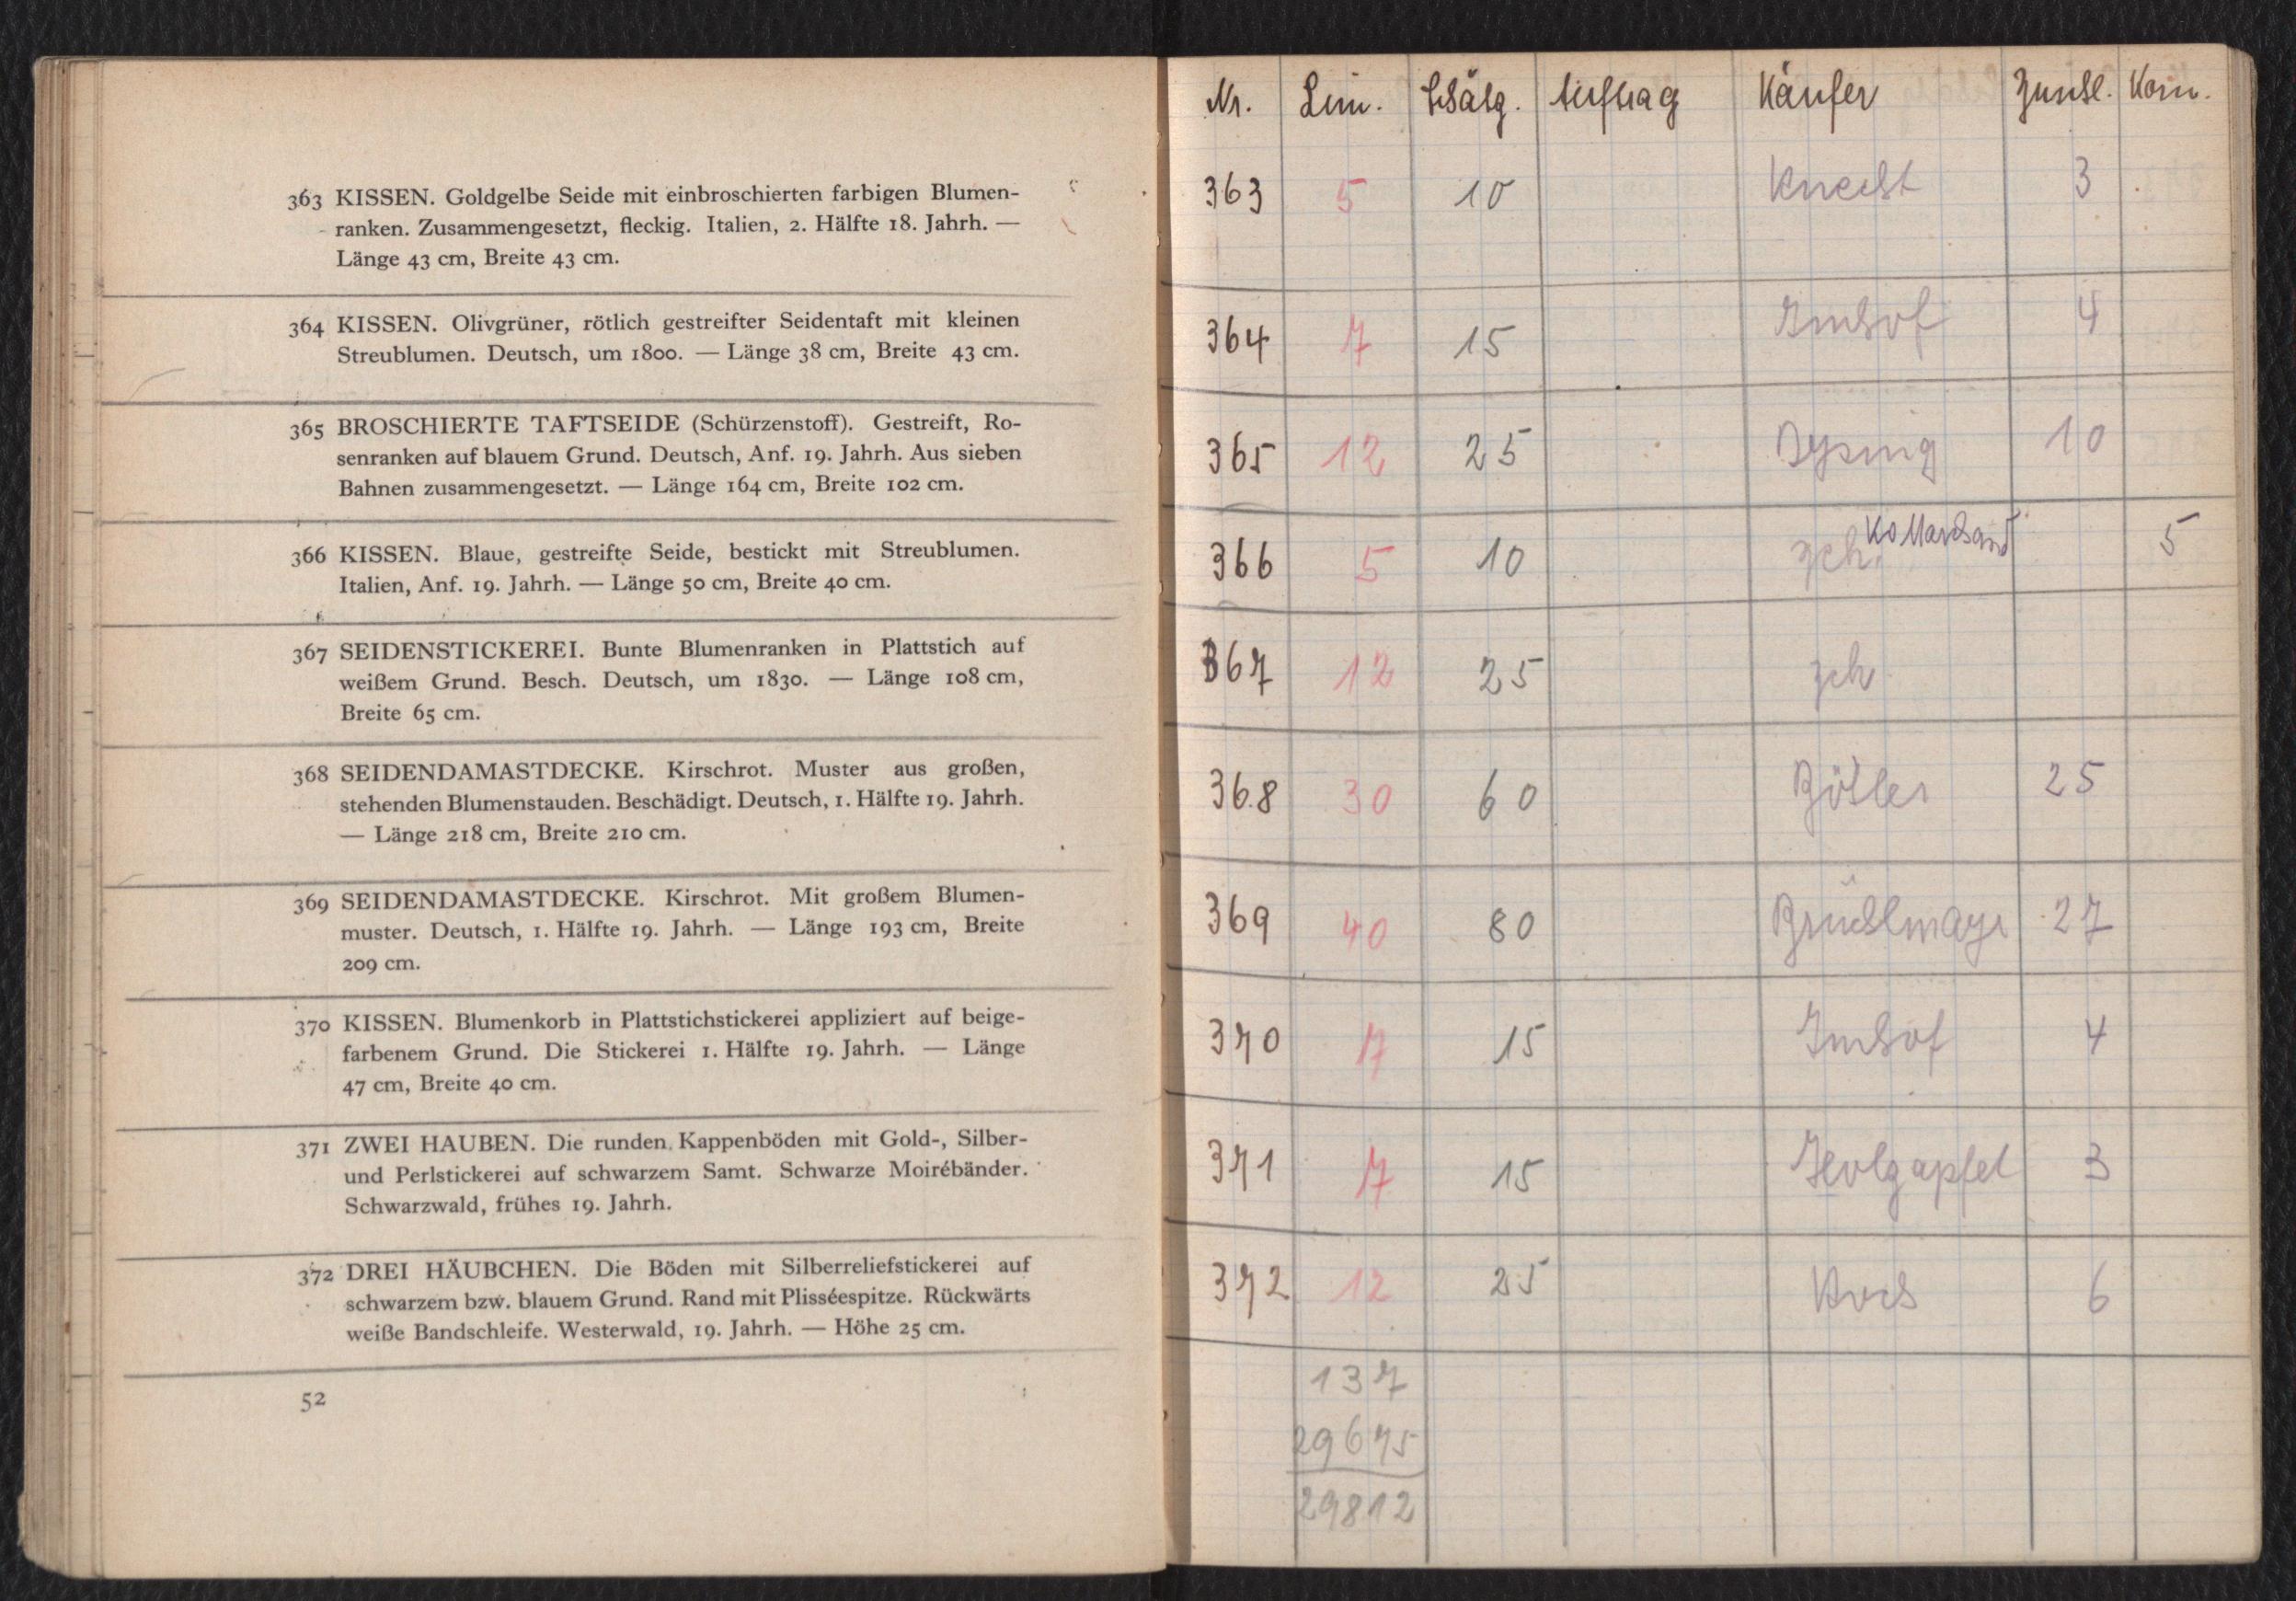 363 KISSEN. Goldgelbe Seide mit einbroschierten farbigen Blumen-
ranken. Zusammengesetzt, fleckig. Italien, 2. Hälfte 18. Jahrh. —
Länge 43 cm, Breite 43 cm.
364 KISSEN. Olivgrüner, rötlich gestreifter Seidentaft mit kleinen
Streublumen. Deutsch, um 1800. — Länge 38 cm, Breite 43 cm.
365 BROSCHIERTE TAFTSEIDE (Schürzenstoff). Gestreift, Ro-
senranken auf blauem Grund. Deutsch, Anf. 19. Jahrh. Aus sieben
Bahnen zusammengesetzt. — Länge 164 cm, Breite 102 cm.
366 KISSEN. Blaue, gestreifte Seide, bestickt mit Streublumen.
Italien, Anf. 19. Jahrh. — Länge 50 cm, Breite 40 cm.
367 SEIDENSTICKEREI. Bunte Blumenranken in Plattstich auf
weißem Grund. Besch. Deutsch, um 1830. — Länge 108 cm,
Breite 65 cm.
368 SEIDENDAMASTDECKE. Kirschrot. Muster aus großen,
stehenden Blumenstauden. Beschädigt. Deutsch, 1. Hälfte 19. Jahrh.
— Länge 218 cm, Breite 210 cm.
369 SEIDENDAMASTDECKE. Kirschrot. Mit großem Blumen-
muster. Deutsch, 1. Hälfte 19. Jahrh. — Länge 193 cm, Breite
209 cm.
370 KISSEN. Blumenkorb in Plattstichstickerei appliziert auf beige-
farbenem Grund. Die Stickerei 1. Hälfte 19. Jahrh. — Länge
47 cm, Breite 40 cm.
371 ZWEI HAUBEN. Die runden Kappenböden mit Gold-, Silber-
und Perlstickerei auf schwarzem Samt. Schwarze Moirébänder.
Schwarzwald, frühes 19. Jahrh.
372 DREI HÄUBCHEN. Die Böden mit Silberreliefstickerei auf
schwarzem bzw. blauem Grund. Rand mit Plisséespitze. Rückwärts
weiße Bandschleife. Westerwald, 19. Jahrh. — Höhe 25 cm.
52
Nr. Lim. Schätzg. Auftrag Käufer Zuschl. Kom.
363 5 10 Knecht 3
364 7 15 Imhof 4
365 12 25 10
366 5 10 zch. 5
367 12 25 zch
368 30 60 Böhler 25
369 40 80 Brüchlmayr 27
370 7 15 Imhof 4
371 7 15 Holzapfel 3
372 12 25 Koch 6
137
29675
29812